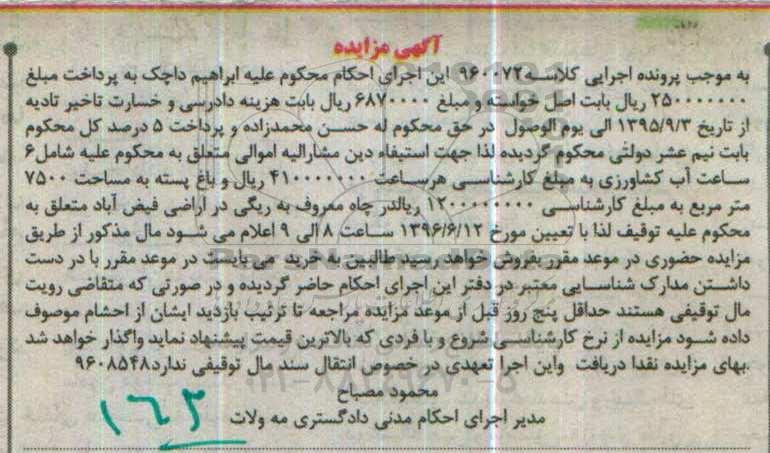 آگهی مزایده
به موجب پرونده اجرایی کلاسه۹۶۰۰۷۲ این اجرای احکام محکوم علیه ابراهیم داچک به پرداخت مبلغ
۲۵۰۰۰۰۰۰۰ ریال بابت اصل خواسته و مبلغ ۶۸۷۰۰۰۰ ریال بابت هزینه دادرسی و خسارت تاخیر تادیه
از تاریخ ۱۳۹۵/۹/۳ الی یوم الوصول در حق محکوم له حسن محمدزاده و پرداخت ۵ درصد کل محکوم
بابت نیم عشر دولتی محکوم گردیده لذا جهت استیفاء دین مشارالیه اموالی متعلق به محکوم علیه شامل۶
ساعت آب کشاورزی به مبلغ کارشناسی هرساعت ۴۱۰۰۰۰۰۰۰ ریال و باغ پسته به مساحت ۷۵۰۰
متر مربع به مبلغ کارشناسی ۱۲۰۰۰۰۰۰۰۰ ریالدر چاه معروف به ریگی در اراضی فیض آباد متعلق به
محکوم علیه توقیف لذا با تعیین مورخ ۱۳۹۶/۶/۱۲ ساعت ۸ الی ۹ اعلام می شود مال مذکور از طریق
مزایده حضوری در موعد مقرر بفروش خواهد رسید طالبین به خرید می بایست در موعد مقرر با در دست
داشتن مدارک شناسایی معتبر در دفتر این اجرای احکام حاضر گردیده و در صورتی که متقاضی رویت
مال توقیفی هستند حداقل پنج روز قبل از موعد مزایده مراجعه تا ترتیب بازدید ایشان از احشام موصوف
داده شود مزایده از نرخ کارشناسی شروع و با فردی که بالاترین قیمت پیشنهاد نماید واگذار خواهد شد
.بهای مزایده نقدا دریافت واین اجرا تعهدی در خصوص انتقال سند مال توقیفی ندارد۹۶۰۸۵۴۸
محمود مصباح
مدیر اجرای احکام مدنی دادگستری مه ولات
۱۶۲